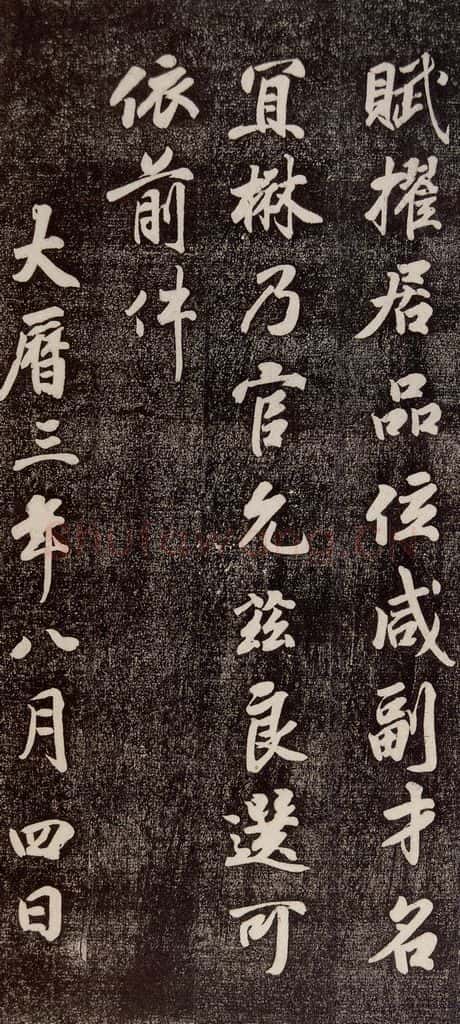 賦擢居品位咸副才名
宜楙乃官允茲良選可
依前件
大曆三年八月四日